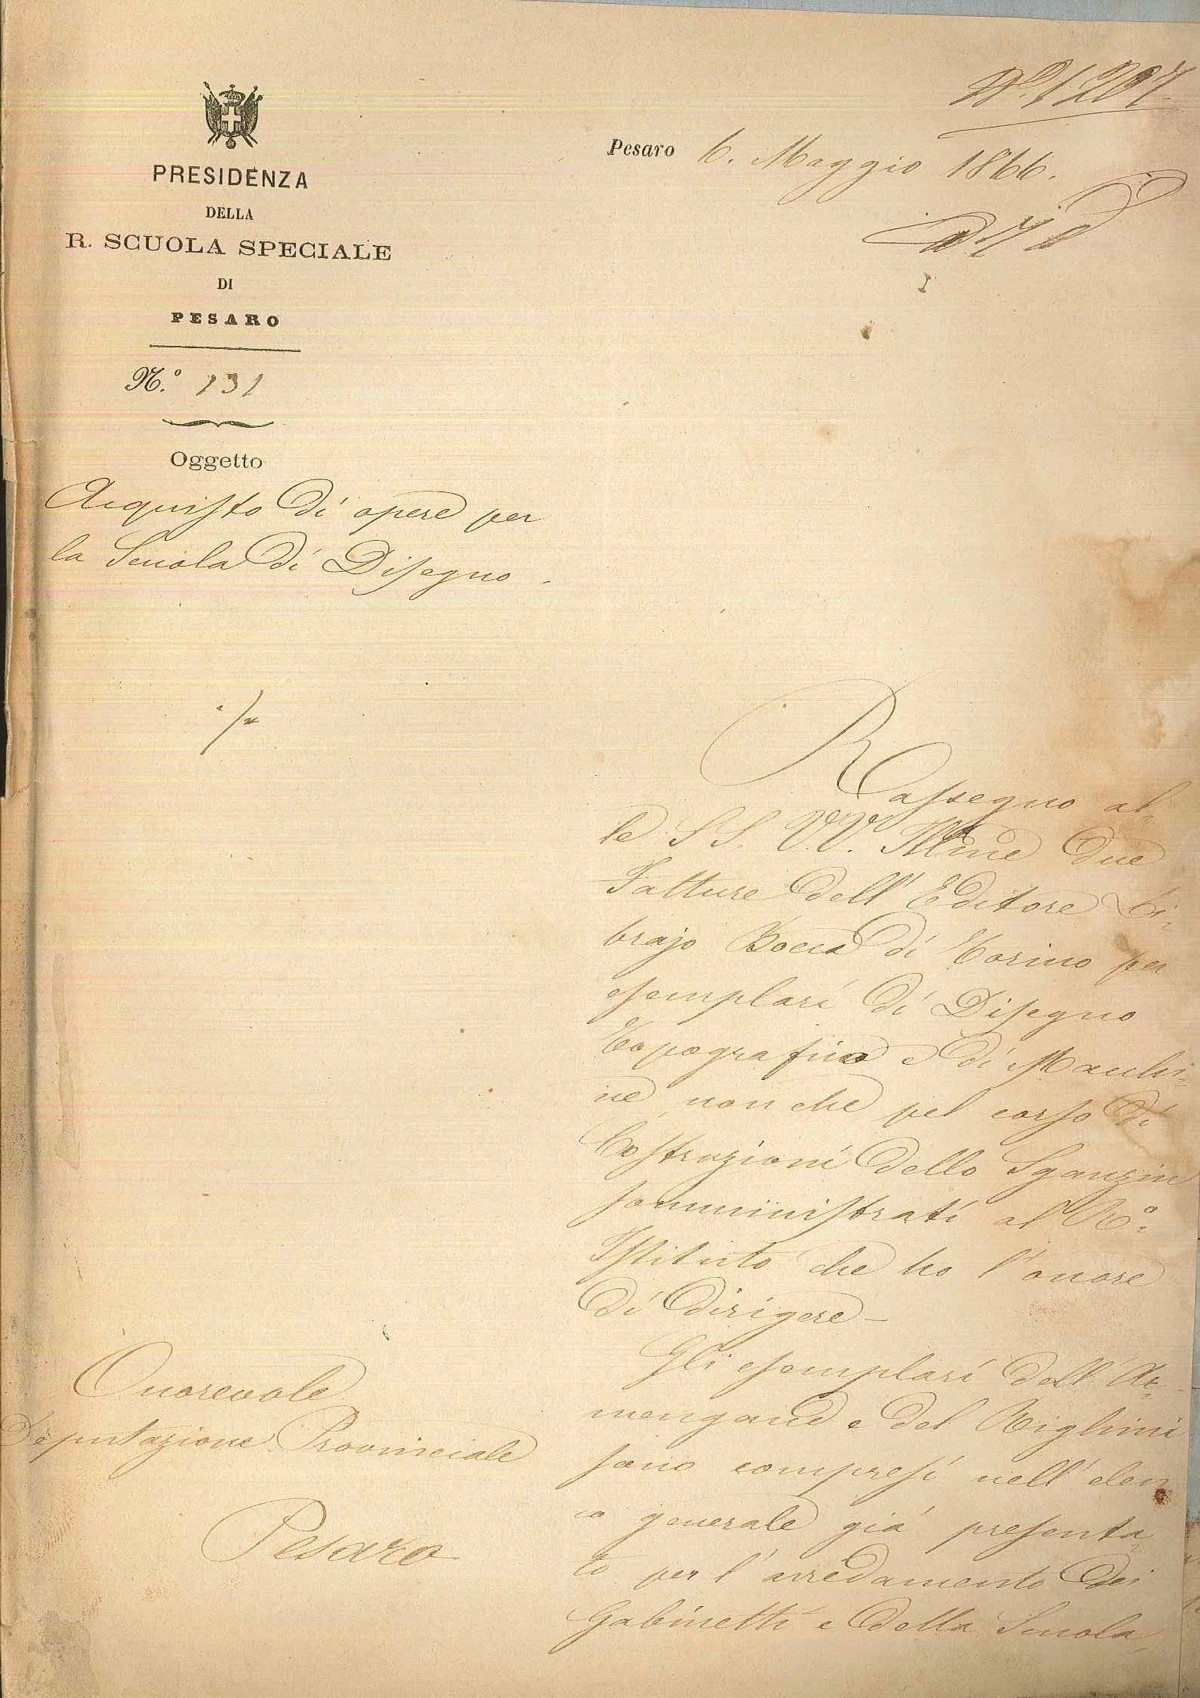 N.° 1207
PRESIDENZA
DELLA
R. SCUOLA SPECIALE
DI
PESARO
N.° 131
Oggetto
Acquisto di opere per
la Scuola di Disegno.
Pesaro 6. Maggio 1866.
Rassegno al-
le SS. VV. Illme due
Fatture dell'Editore Li-
brajo Bocca di Torino per
esemplari di Disegno
Topografico e di Macchi-
ne, non che pel corso di
Costruzioni dello Sganzin
somministrati al R.°
Istituto che ho l'onore
di dirigere –
Gli esemplari dell'Ar-
mengaud e del Righini
sono compresi nell'elen
co generale già presenta-
to per l'arredamento dei
Gabinetti e della Scuola,
Onorevole
Deputazione Provinciale
Pesaro